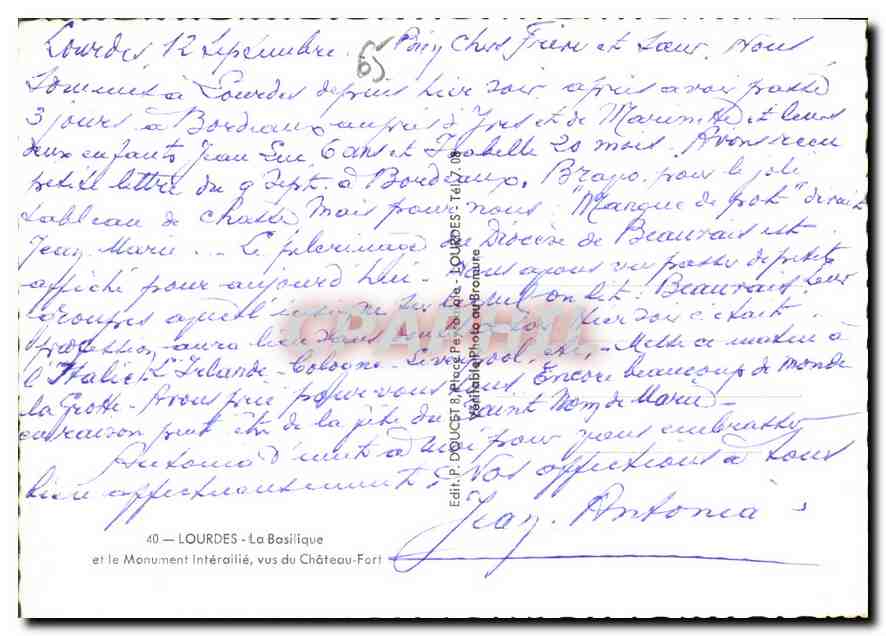 Lourdes, 12 Septembre. 65 Bien chers Frère et Sœur. Nous
sommes à Lourdes depuis hier soir, après avoir passé
3 jours à Bordeaux auprès d'Yves et de et leurs
deux enfants Jean Luc 6 ans et Isabelle 20 mois. Avons reçu
petite lettre du 9 Sept. à Bordeaux. Bravo pour le joli
tableau de chasse mais pour nous : "Manque de pot" dirait
Jean Marie... Le pèlerinage du Diocèse de Beauvais est
affiché pour aujourd'hui. Nous avons vu passer de petits
groupes on lit : Beauvais. Leur
procession aura lieu hier soir c'était
l'Italie, l'Irlande - Cologne - Liverpool, etc, - Messe ce matin à
la Grotte. Avons prié pour vous tous. Encore beaucoup de monde
en raison peut être de la fête du Saint Nom de Marie -
Antonia s'unit à moi pour vous embrasser
bien affectueusement. Nos affections à tous
Jean. Antonia
40 — LOURDES - La Basilique
et le Monument Intéraillé, vus du Château-Fort
Edit. P. DOUCET 8, Place Peyramale - LOURDES - Tél. 7.08
Véritable Photo au Bromure